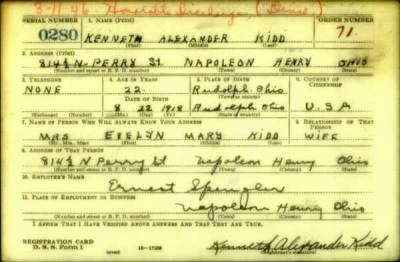 3-11-46 Honorable Discharge (Denied)
SERIAL NUMBER 1. NAME (Print) ORDER NUMBER
0280 KENNETH ALEXANDER KIDD 71
(First) (Middle) (Last)
2. ADDRESS (Print)
814½ N. PERRY St. NAPOLEON HENRY OHIO
(Number and street or R. F. D. number) (Town) (County) (State)
3. TELEPHONE 4. AGE IN YEARS 5. PLACE OF BIRTH 6. COUNTRY OF CITIZENSHIP
NONE 22 Rudolph Ohio
DATE OF BIRTH
8 22 1918 Rudolph Ohio U.S.A
(Exchange) (Number) (Mo.) (Day) (Yr.) (State or country)
7. NAME OF PERSON WHO WILL ALWAYS KNOW YOUR ADDRESS 8. RELATIONSHIP OF THAT PERSON
MRS EVELYN MARY KIDD WIFE
(Mr., Mrs., Miss) (First) (Middle) (Last)
9. ADDRESS OF THAT PERSON
814½ N Perry St Napoleon Henry Ohio
(Number and street or R. F. D. number) (Town) (County) (State)
10. EMPLOYER'S NAME
Ernest Spengler
11. PLACE OF EMPLOYMENT OR BUSINESS
Napoleon Henry Ohio
(Number and street or R. F. D. number) (Town) (County) (State)
I AFFIRM THAT I HAVE VERIFIED ABOVE ANSWERS AND THAT THEY ARE TRUE.
REGISTRATION CARD
D. S. S. Form 1 16-17105 Kenneth Alexander Kidd
(Registrant's signature)